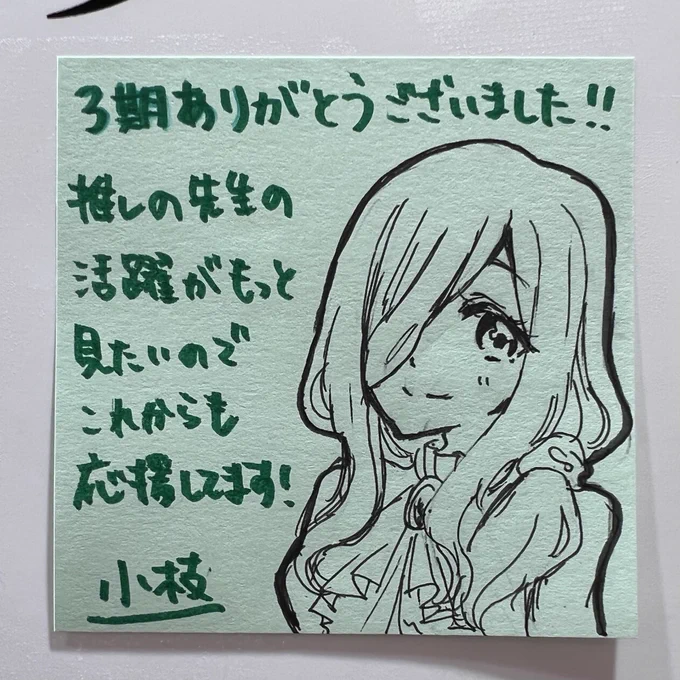 3期ありがとうございました!!
推しの先生の
活躍がもっと
見たいので
これからも
応援してます!
小枝